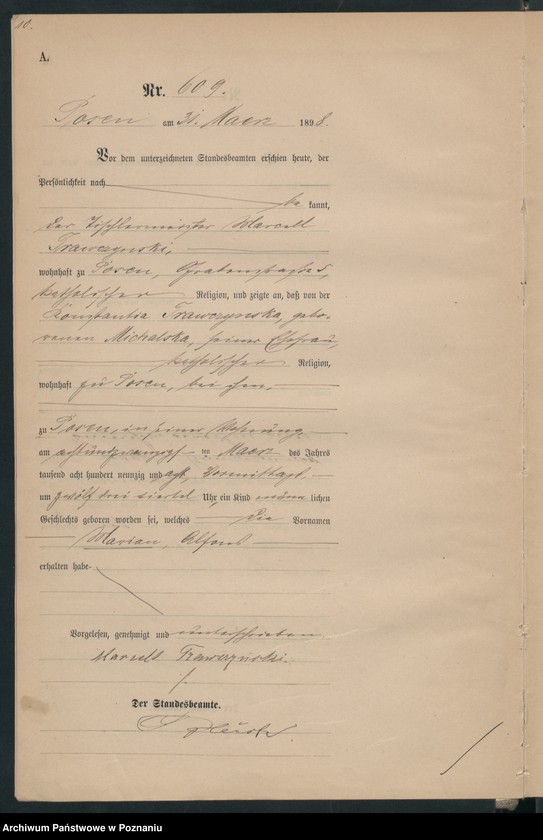 10.
A.
Nr. 609.
Posen am 31. Maerz 1898.
Vor dem unterzeichneten Standesbeamten erschien heute, der
Persönlichkeit nach
be kannt,
der Tischlermeister Marcell
Trawczynski,
wohnhaft zu Posen, Grabenstraße
katholischer Religion, und zeigte an, daß von der
Konstantia Trawczynska, gebo-
renen Michalska, seiner Ehefrau,
katholischer Religion,
wohnhaft zu Posen, bei ihm,
zu Posen, in seiner Wohnung,
am achtundzwanzigsten Maerz des Jahres
tausend acht hundert neunzig und acht, Vormittags
um zwölf drei viertel Uhr, ein Kind männlichen
Geschlechts geboren worden sei, welches die Vornamen
Marian, Alfons
erhalten habe.
Vorgelesen, genehmigt und unterschrieben
Marcell Trawczynski.
Der Standesbeamte.
Archiwum Państwowe w Poznaniu